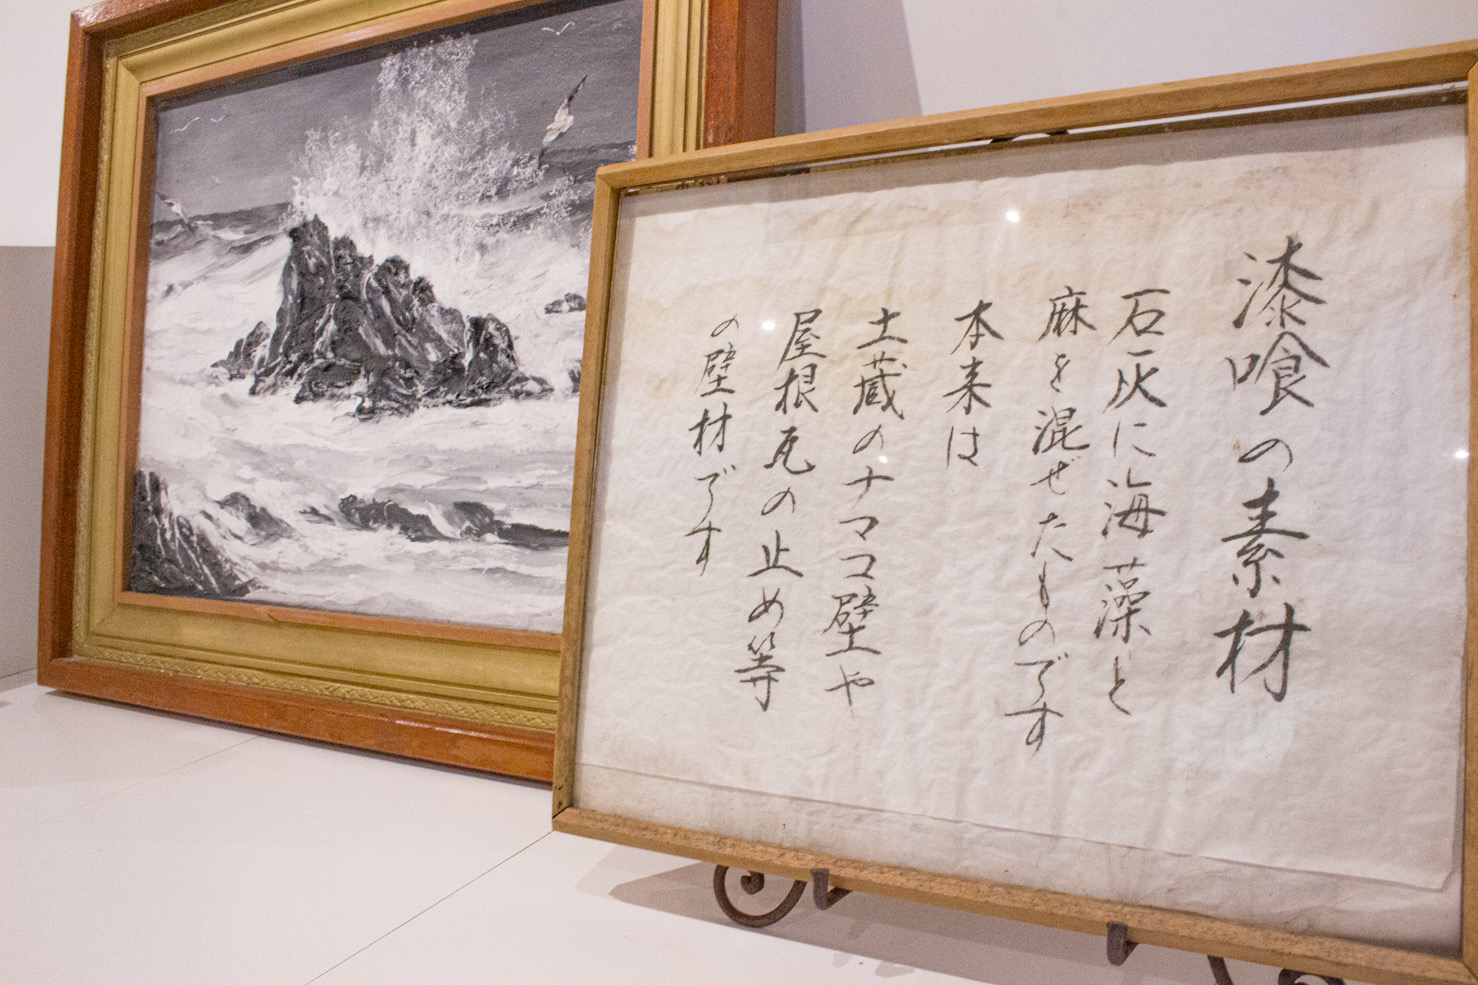 漆喰の素材
石灰に海藻と
麻を混ぜたものです
本来は
土蔵のナマコ壁や
屋根瓦の止め等
の壁材です